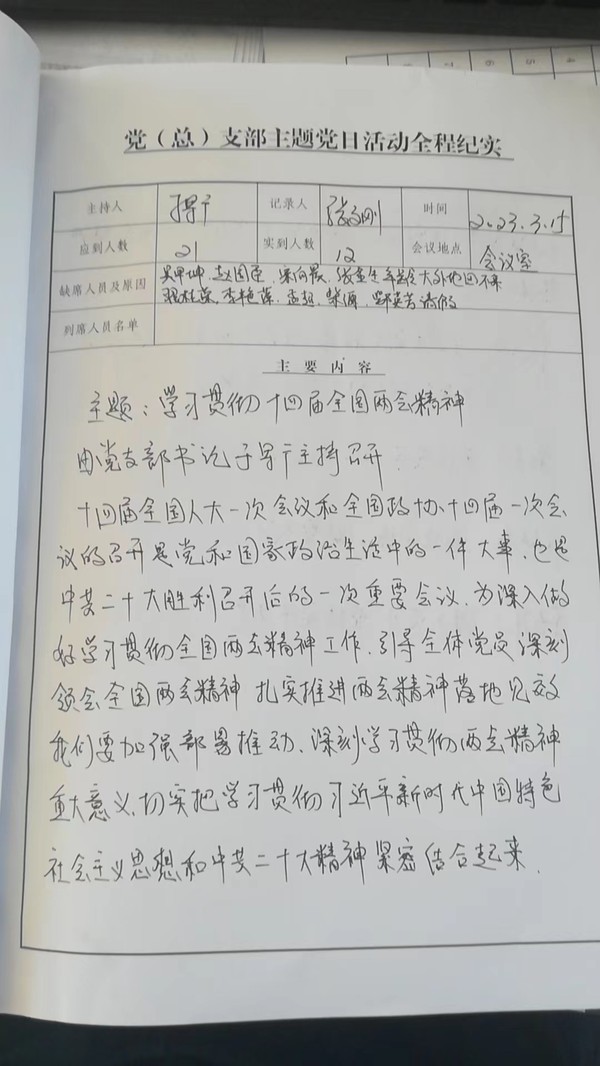 党（总）支部主题党日活动全程纪实
主持人 记录人 时间 2023.3.15
应到人数 21 实到人数 12 会议地点 会议室
缺席人员及原因 赵国臣 年龄大外地回不来
请假
列席人员名单
主要内容
主题：学习贯彻十四届全国两会精神
由党支部书记于景广主持召开
十四届全国人大一次会议和全国政协十四届一次会
议的召开是党和国家政治生活中的一件大事、也是
中共二十大胜利召开后的一次重要会议、为深入做
好学习贯彻全国两会精神工作、引导全体党员深刻
领会全国两会精神 扎实推进两会精神落地见效
我们要加强部署推动、深刻学习贯彻两会精神
重大意义、切实把学习贯彻习近平新时代中国特色
社会主义思想和中共二十大精神紧密结合起来、